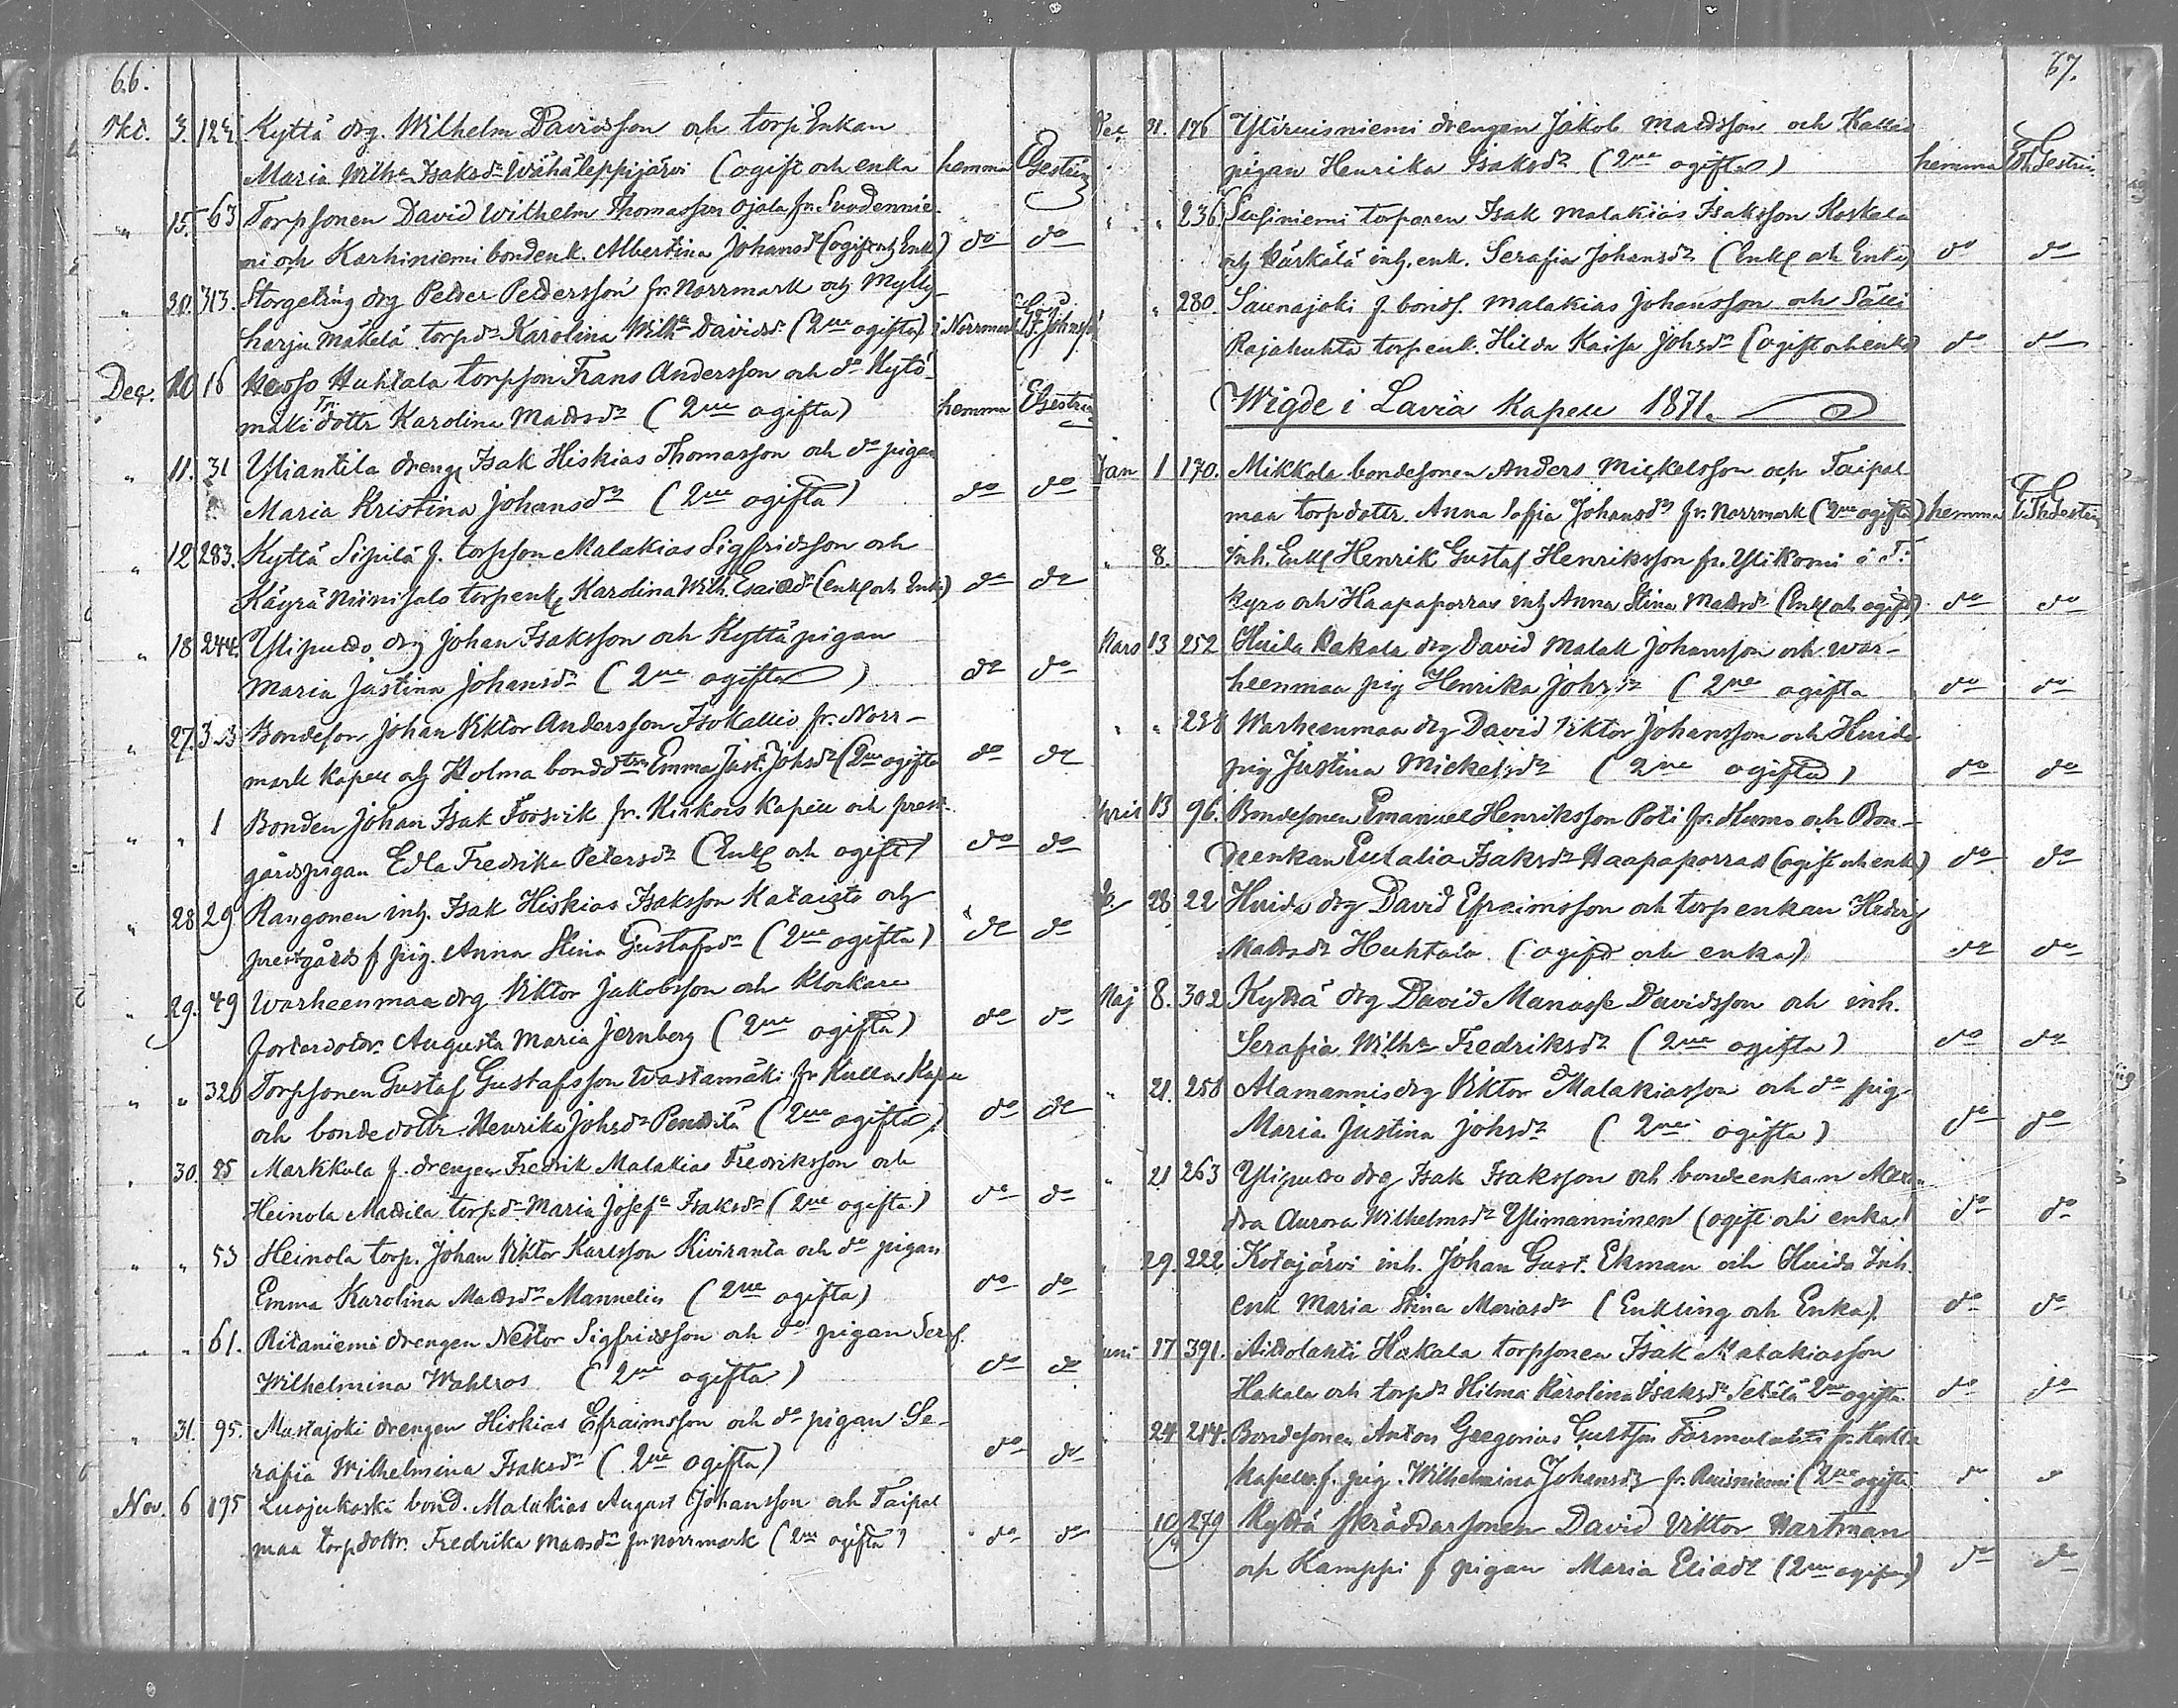 66.
Okt. 3. 124 Kyttä drg. Wilhelm Davidsson och torpEnkan
Maria Wilha Isaksdr Wähäleppijärvi (ogift och enka hemma EGestrin
" 15. 63 Torpsonen David Wilhelm Thomasson Ojala fr. Suodennie
mi och Karhiniemi bondenk. Albertina Johansdr (ogift och Enka) do do
" 30. 313. Storgeting drg Petter Pettersson fr. Norrmark och Mylly-
harju Mäkelä torpdr Karolina Wilha Davidsdr (2ne ogifta) i Norrmark
Dec. 10 16 Huhtala torpson Frans Andersson och do Kytö-
mäki dottr Karolina Mattsdr (2ne ogifta) hemma EGestrin
" 11. 31 Yliantila dreng Isak Hiskias Thomasson och do pigan
Maria Kristina Johansdr (2ne ogifta) do do
" 12 283. Kyttä Sipilä f. torpson Malakias Sigfridsson och
Käyrä Niinisalo torpenk Karolina Wilh. Esaiædr (Enkl och Enka) do do
" 18 244. Ylipuldo drg Johan Isaksson och Kyttä pigan
Maria Justina Johansdr (2ne ogifta) do do
" 27. Bondeson Johan Viktor Andersson Isokallio fr. Norr-
mark kapell och Holma bonddtrn Emma Just. Johsdr (2ne ogifta do do
" " 1 Bonden Johan Isak Forsvik fr. Kiikois kapell och prest-
gårdspigan Edla Fredrika Petersdr (Enkl och ogift) do do
" 28 29 Rangonen inh. Isak Hiskias Isaksson Kataisto och
prestgårds f pig. Anna Stina Gustafsdr (2ne ogifta) do do
" 29. 49 Warheenmaa drg Viktor Jakobsson och Klockare
fosterdotdr. Augusta Maria Jernberg (2ne ogifta) do do
" " 320 Torpsonen Gustaf Gustafsson Wastamäki fr Kullaa Kape
och bondedottr. Henrika Johsdr Penttilä (2ne ogifta) do do
" 30. 25 Markkula f. drengen Fredrik Malakias Fredriksson och
Heinola Mattila torpdr Maria Josefa Isaksdr (2ne ogifta) do do
" " 53 Heinola torp. Johan Viktor Karlsson Kiviranta och do pigan
Emma Karolina Mattsdr Mannelin (2ne ogifta) do do
" " 61. Ritaniemi drengen Nestor Sigfridsson och do pigan Seraf.
Wilhelmina Wahlros (2ne ogifta) do do
" 31. 95. Mustajoki drengen Hiskias Efraimsson och do pigan Se-
rafia Wilhelmina Isaksdr (2ne ogifta) do do
Nov. 6 195 Luojukoski bond. Malakias August Johansson och Taipal
maa torpdottr. Fredrika Mattsdr fr Norrmark (2ne ogifta) do do
67.
Dec 31. 176 Yliruisniemi drengen Jakob Mattsson och Kallio
pigan Henrika Isaksdr (2ne ogifta) hemma Th. Gestrin.
" " 236. Susiniemi torparen Isak Malakias Isaksson Koskala
och Kärkälä inh. enk. Serafia Johansdr (Enkl och Enka) do do
" 280. Saunajoki f. bonds. Malakias Johansson och Sälli
Rajahuhta torpenk. Hilda Kaisa Johsdr (ogift och enka) do do
Wigde i Lavia Kapell 1871.
Jan 1 170. Mikkola bondesonen Anders Mickelsson och Taipal
maa torpdottr. Anna Soffia Johansdr fr. Norrmark (2ne ogifta) hemma Th Gestrin
" 8. Inh. Enkl Henrik Gustaf Henriksson fr. Ylikomi i T.
kyro och Haapaporras inh Anna Stina Mattsdr (Enkl och ogift) do do
Mars 13 252 Huida Kakala drg David Malak Johansson och War-
heenmaa pig Henrika Johsdr (2ne ogifta do do
" " 258 Warheenmaa drg David Viktor Johansson och Huida
pig Justina Mickelsdr (2ne ogifta) do do
April 13 96. Bondesonen Emanuel Henriksson Poti fr. Kumo och Bon-
deenkan Eulalia Isaksdr Haapaporras (ogift och enka) do do
28 22 Huida drg David Efraimsson och torpenkan Hedvig
Mattsdr Huhtala (ogift och enka) do do
Maj 8. 302 Kyttä drg David Manasse Davidsson och inh.
Serafia Wilha Fredriksdr (2ne ogifta) do do
" 21. 258 Alamannis drg Viktor Malakiasson och do pig
Maria Justina Johsdr (2ne ogifta) do do
" 21 263 Ylipuldo drg Isak Isaksson och bondeenkan
Aurora Wilhelmsdr Ylimanninen (ogift och enka) do do
" 29. 222 Kotajärvi inh. Johan Gust. Ekman och Huida Inh.
enk Maria Stina Mariasdr (Enkling och Enka). do do
Juni 17 391. Aittolahti Hakala torpsonen Isak Malakiasson
Hakala och torpdr Hilma Karolina Isaksdr Setälä 2ne ogifta do do
" 24 214. Bondesonen Anton Gregorius Gustfson fr. Kulla
kapell o. f. pig. Wilhelmina Johansdr fr. Ruisniemi (2ne ogifta do do
279 Kyttä skräddarsonen David Viktor Wartman
och Kamppi f pigan Maria Eliædr (2ne ogifta) do do